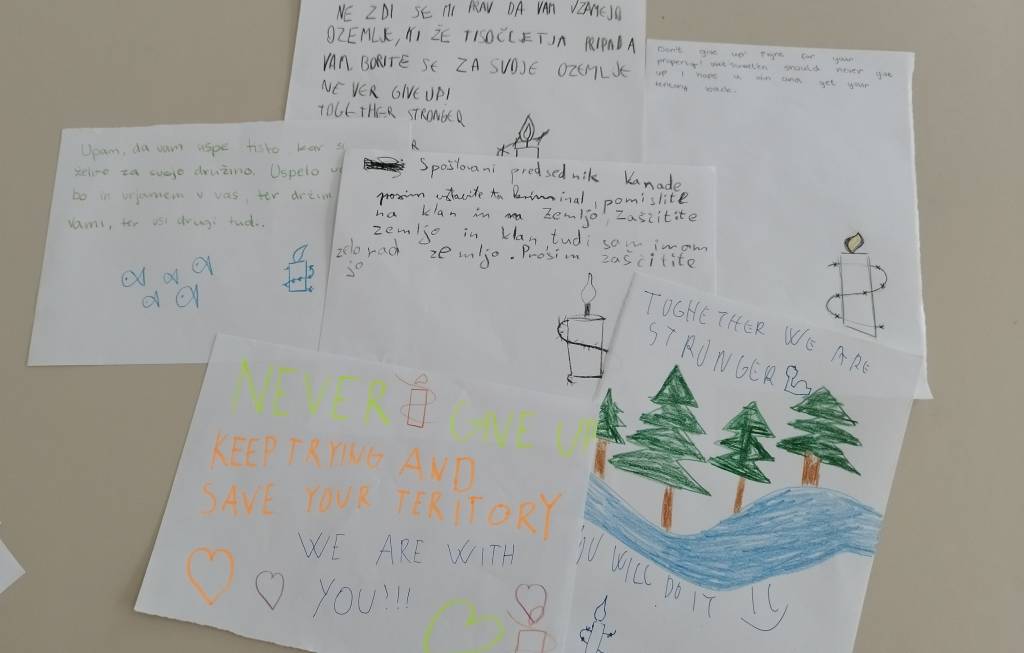 NE ZDI SE MI PRAV DA VAM VZAMEJO
OZEMLJE, KI ŽE TISOČLETJA PRIPADA
VAM BORITE SE ZA SVOJE OZEMLJE
NEVER GIVE UP!
TOGETHER STRONGER
Don't give up! Fight for your
property! should never give
up I hope u win and get your
back.
Upam, da vam uspe tisto kar
želite za svojo družino. Uspelo
bo in vrjamem v vas, ter držim
vami, ter vsi drugi tudi.
Spoštovani predsednik Kanade
prosim ustavite ta kriminal, pomislite
na klan in na Zemljo, Zaščitite
zemljo in klan tudi sam imam
zelo rad zemljo. Prosim zaščitite
jo
TOGHETHER WE ARE
STRONGER
YOU WILL DO IT
NEVER GIVE UP
KEEP TRYING AND
SAVE YOUR TERITORY
WE ARE WITH
YOU!!!